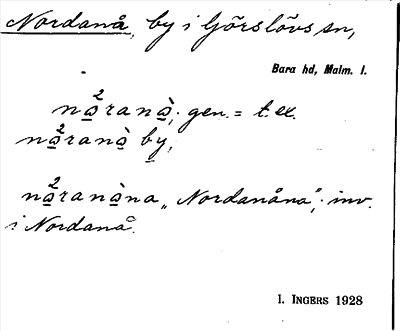 Nordanå, by i Görslövs sn,
Bara hd, Malm. l.
na̲²ranà̲; gen. = t. ex.
na̲²ranà̲ by̲,
na̲²ranà̲na „Nordanåna"; inv.
i Nordanå.
I. INGERS 1928